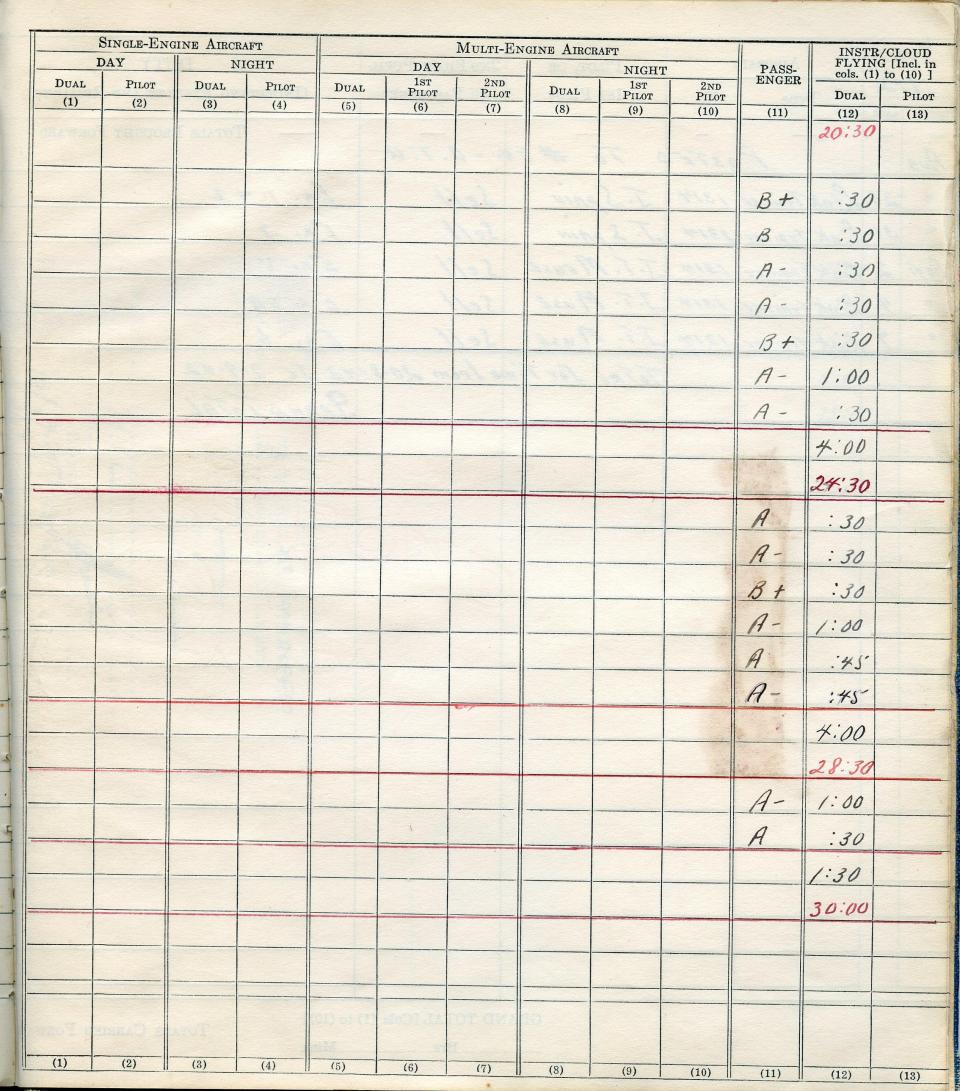 SINGLE-ENGINE AIRCRAFT MULTI-ENGINE AIRCRAFT PASS-ENGER INSTR/CLOUD FLYING [Incl. in cols. (1) to (10) ]
DAY NIGHT DAY NIGHT
DUAL PILOT DUAL PILOT DUAL 1ST PILOT 2ND PILOT DUAL 1ST PILOT 2ND PILOT DUAL PILOT
(1) (2) (3) (4) (5) (6) (7) (8) (9) (10) (11) (12) (13)
20:30
B+ :30
B :30
A- :30
A- :30
B+ :30
A- 1:00
A- :30
4:00
24:30
A :30
A- :30
B+ :30
A- 1:00
A :45
A- :45
4:00
28:30
A- 1:00
A :30
1:30
30:00
(1) (2) (3) (4) (5) (6) (7) (8) (9) (10) (11) (12) (13)